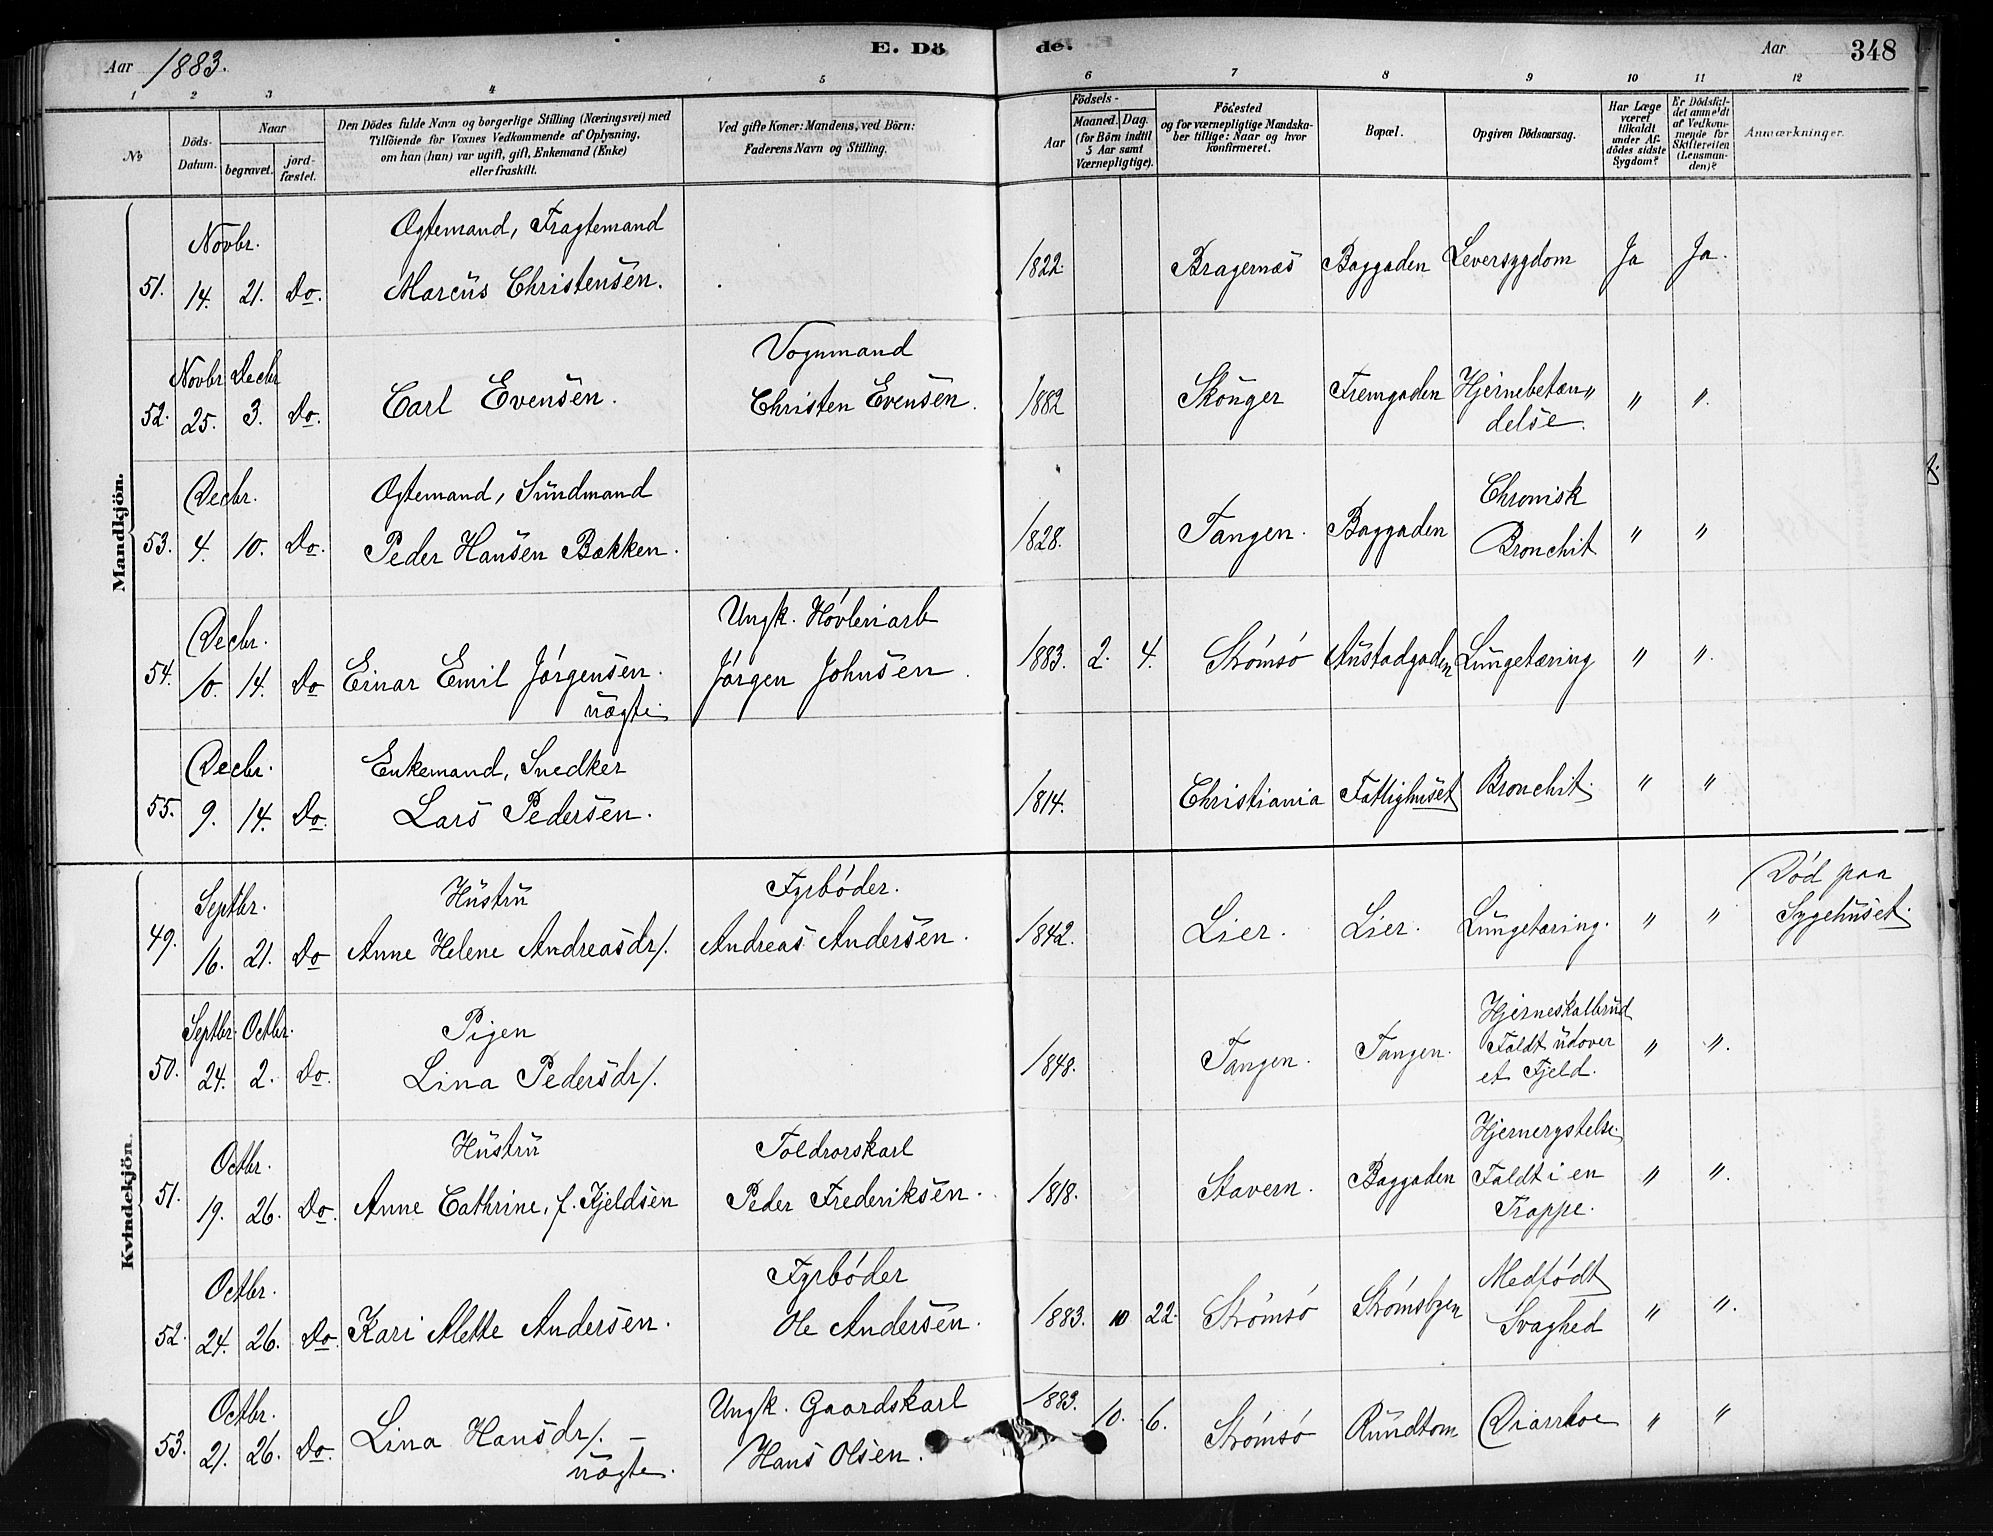 Aar 1883.
E. Dö
de.
Aar
348
1 2 3 4 5 6 7 8 9 10 11 12
No
Döds-Datum.
Naar
begravet.
jordfæstet.
Den Dödes fulde Navn og borgerlige Stilling (Næringsvei) med
Tilföiende for Voxnes Vedkommende af Oplysning,
om han (hun) var ugift, gift, Enkemand (Enke)
eller fraskilt.
Ved gifte Koner: Mandens, ved Börn:
Faderens Navn og Stilling.
Födsels-
Aar
Maaned. Dag.
(for Börn indtil
5 Aar samt
Værnepligtige).
Födested
og for værnepligtige Mandska-
ber tillige: Naar og hvor
konfirmeret.
Bopæl.
Opgiven Dödsaarsag.
Har Læge
været
tilkaldt
under Af-
dödes sidste
Sygdom?
Er Dödsfal-
det anmeldt
af Vedkom-
mende for
Skifteretten
(Lensman-
den)?
Anmærkninger.
Mandkjön.
Novbr. Ogtemand, Fragtemand
51. 14. 21. Do. Marcus Christensen. 1822. Bragernæs Baggaden Leversygdom Ja Ja.
Novbr Decbr Vognmand
52. 25. 3. Do. Carl Evensen. Christen Evensen. 1882 Skouger Fremgaden Hjernebetæn" " ".
delse.
Decbr. Ogtemand, Sundmand Chronisk
53. 4. 10. Do. Peder Hansen Bækken. 1828. Tangen. Baggaden Bronchit " "
Decbr. Ungk. Høvleriarb
54. 10. 14. Do Einar Emil Jørgensen. Jørgen Johnsen. 1883. 2. 4. Strømsø Austadgaden Lungetæring " ".
uægte.
Decbr. Enkemand, Snedker
55. 9. 14. Do. Lars Pedersen. 1814. Christiania Fattighuset Bronchit. " "
Kvindekjön.
Septbr. Hustru Fyrbøder. Død paa
49. 16. 21. Do Anne Helene Andreasdr/. Andreas Andersen. 1842. Lier. Lier. Lungetæring. " " Sygehuset.
Septbr. Octbr. Pigen Hjerneskalbrud
50. 24. 2. Do. Lina Pedersdr/. 1848. Tangen. Tangen. Faldt udover " ".
et Fjeld.
Octbr. Hustru Toldrorskarl Hjernerystelse.
51. 19. 26. Do. Anne Cathrine, f. Kjeldsen Peder Frederiksen. 1818. Stavern. Baggaden Faldt i en " ".
Trappe.
Octbr. Fyrbøder Medfødt
52. 24. 26. Do. Kari Alette Andersen. Ole Andersen. 1883. 10 22. Strømsø Strømsbyen Svaghed " ".
Octbr. Ungk. Gaardskarl
53. 21. 26. Do. Lina Hansdr/. Hans Olsen. 1883. 10. 6. Strømsø Rundtom Diarrhoe " "
uægte.